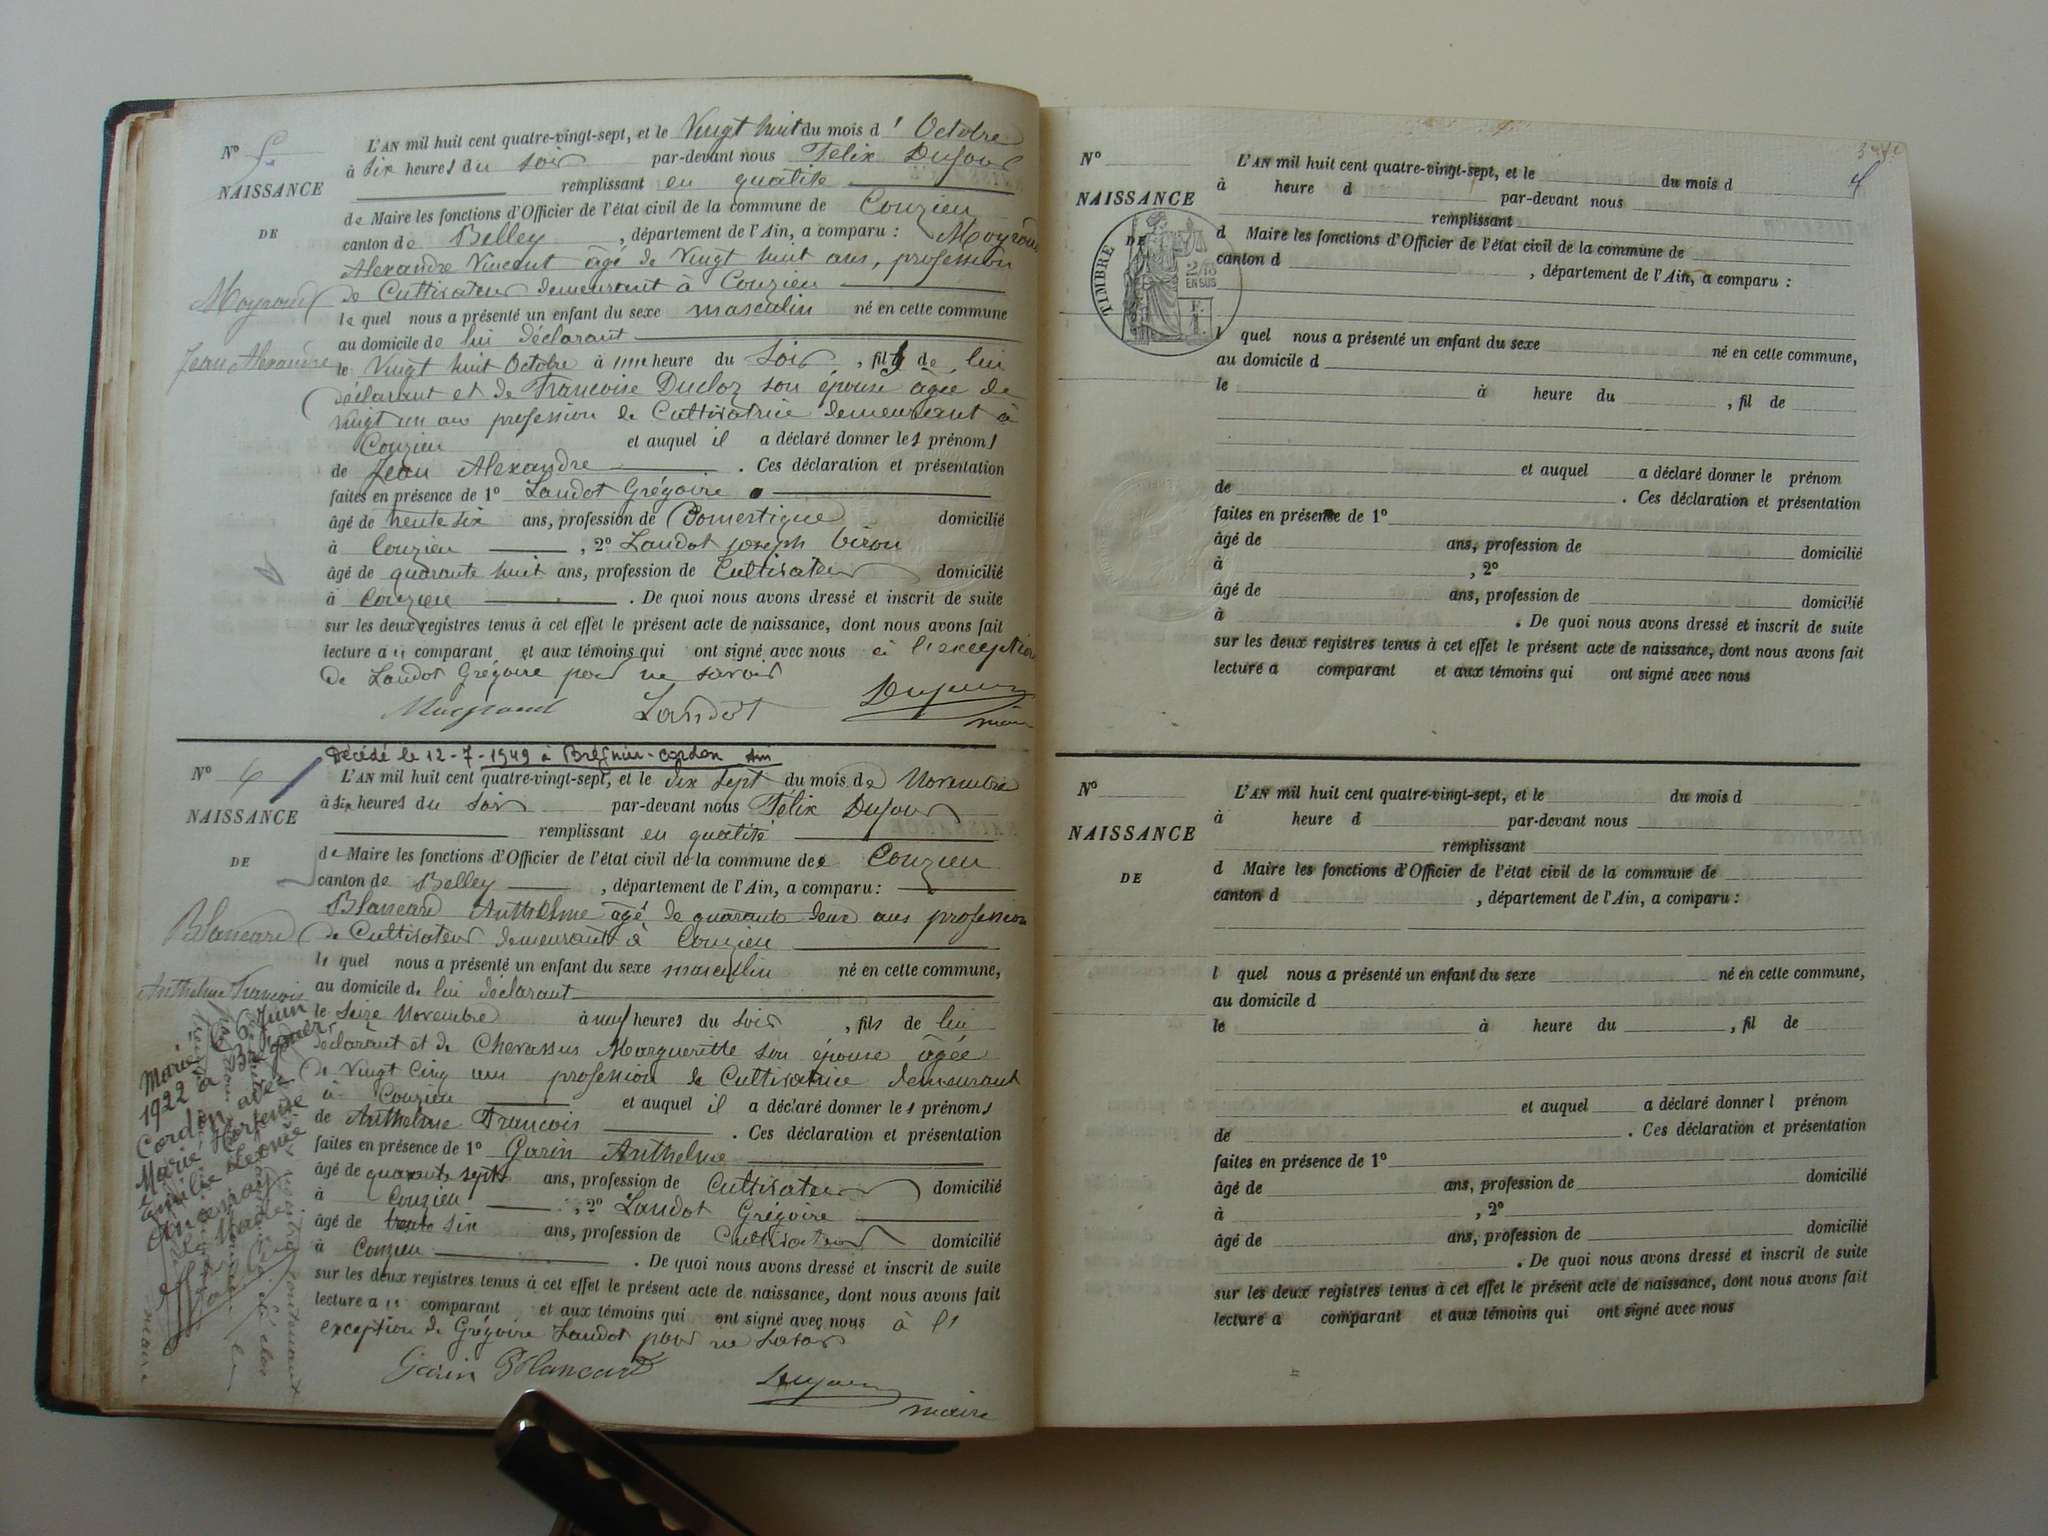 N° 5
NAISSANCE
DE
Moyroud
Jean Alexandre
L'AN mil huit cent quatre-vingt-sept, et le Vingt huit du mois d' Octobre
à six heures du soir par-devant nous Félix Dufour
remplissant en qualité
de Maire les fonctions d'Officier de l'état civil de la commune de Conzieu
canton de Belley, département de l'Ain, a comparu : Moyroud
Alexandre Vincent âgé de Vingt huit ans, profession
de Cultivateur demeurant à Conzieu
lequel nous a présenté un enfant du sexe masculin né en cette commune
au domicile de lui déclarant
le Vingt huit Octobre à une heure du Soir, fils de lui
déclarant et de Francoise Ducloz son épouse âgée de
vingt un ans profession de Cultivatrice demeurant à
Conzieu et auquel il a déclaré donner les prénoms
de Jean Alexandre. Ces déclaration et présentation
faites en présence de 1° Landot Grégoire
âgé de trente six ans, profession de Domestique domicilié
à Conzieu, 2° Landot joseph
âgé de quarante huit ans, profession de Cultivateur domicilié
à Conzieu. De quoi nous avons dressé et inscrit de suite
sur les deux registres tenus à cet effet le présent acte de naissance, dont nous avons fait
lecture au comparant et aux témoins qui ont signé avec nous à l'exception
de Landot Grégoire pour ne savoir
Moyroud Landot Dufour
maire
Décédé le 12-7-1949 à Brégnier-Cordon Ain
N° 6
NAISSANCE
DE
Blancard
Anthelme Francois
L'AN mil huit cent quatre-vingt-sept, et le dix sept du mois de Novembre
à six heures du soir par-devant nous Félix Dufour
remplissant en qualité
de Maire les fonctions d'Officier de l'état civil de la commune de Conzieu
canton de Belley, département de l'Ain, a comparu :
Blancard Anthelme âgé de quarante deux ans profession
de Cultivateur demeurant à Conzieu
lequel nous a présenté un enfant du sexe masculin né en cette commune,
au domicile de lui déclarant
le Seize Novembre à neuf heures du Soir, fils de lui
déclarant et de Chevassus Margueritte son épouse âgée
de Vingt Cinq ans profession de Cultivatrice demeurant
à Conzieu et auquel il a déclaré donner les prénoms
de Anthelme Francois. Ces déclaration et présentation
faites en présence de 1° Garin Anthelme
âgé de quarante sept ans, profession de Cultivateur domicilié
à Conzieu, 2° Landot Grégoire
âgé de trente six ans, profession de Cultivateur domicilié
à Conzieu. De quoi nous avons dressé et inscrit de suite
sur les deux registres tenus à cet effet le présent acte de naissance, dont nous avons fait
lecture au comparant et aux témoins qui ont signé avec nous à l'
exception de Grégoire Landot pour ne savoir
Garin Blancard Dufour
maire
Marié le 6 Juin
1922 à Brégnier
Cordon avec
Marie Hortense
Emilie Léonie
le Maire
maire
4
N°
NAISSANCE
DE
TIMBRE
2/10
EN SUS
L'AN mil huit cent quatre-vingt-sept, et le du mois d
à heure d par-devant nous
remplissant
d Maire les fonctions d'Officier de l'état civil de la commune de
canton d , département de l'Ain, a comparu :
l quel nous a présenté un enfant du sexe né en cette commune,
au domicile d
le à heure du , fil de
et auquel a déclaré donner le prénom
de . Ces déclaration et présentation
faites en présence de 1°
âgé de ans, profession de domicilié
à , 2°
âgé de ans, profession de domicilié
à . De quoi nous avons dressé et inscrit de suite
sur les deux registres tenus à cet effet le présent acte de naissance, dont nous avons fait
lecture a comparant et aux témoins qui ont signé avec nous
N°
NAISSANCE
DE
L'AN mil huit cent quatre-vingt-sept, et le du mois d
à heure d par-devant nous
remplissant
d Maire les fonctions d'Officier de l'état civil de la commune de
canton d , département de l'Ain, a comparu :
l quel nous a présenté un enfant du sexe né en cette commune,
au domicile d
le à heure du , fil de
et auquel a déclaré donner l prénom
de . Ces déclaration et présentation
faites en présence de 1°
âgé de ans, profession de domicilié
à , 2°
âgé de ans, profession de domicilié
. De quoi nous avons dressé et inscrit de suite
sur les deux registres tenus à cet effet le présent acte de naissance, dont nous avons fait
lecture a comparant et aux témoins qui ont signé avec nous